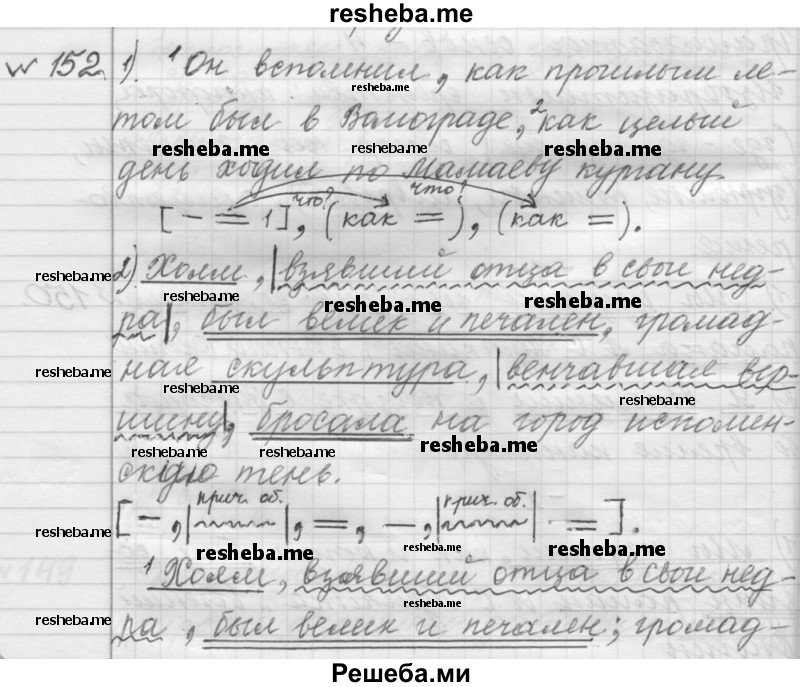 resheba.me
№ 152. 1). ¹Он вспомнил, как прошлым ле-
resheba.me
том был в Волгограде, ²как целый
resheba.me resheba.me resheba.me
день ходил по Мамаеву кургану.
что? что?
[- = 1], (как =), (как =).
resheba.me 2) Холм, |взявший отца в свои нед-
resheba.me resheba.me resheba.me
ра|, был велик и печален, громад-
resheba.me ная скульптура, |венчавшая вер-
resheba.me resheba.me
шину|, бросала на город исполин-
resheba.me resheba.me resheba.me
скую тень.
прич. об. прич. об.
resheba.me [-, |~~~~|, =, -, |~~~~| =].
resheba.me resheba.me resheba.me
¹Холм, взявший отца в свои нед-
resheba.me
resheba.me ра, был велик и печален; громад-
Решеба.ми